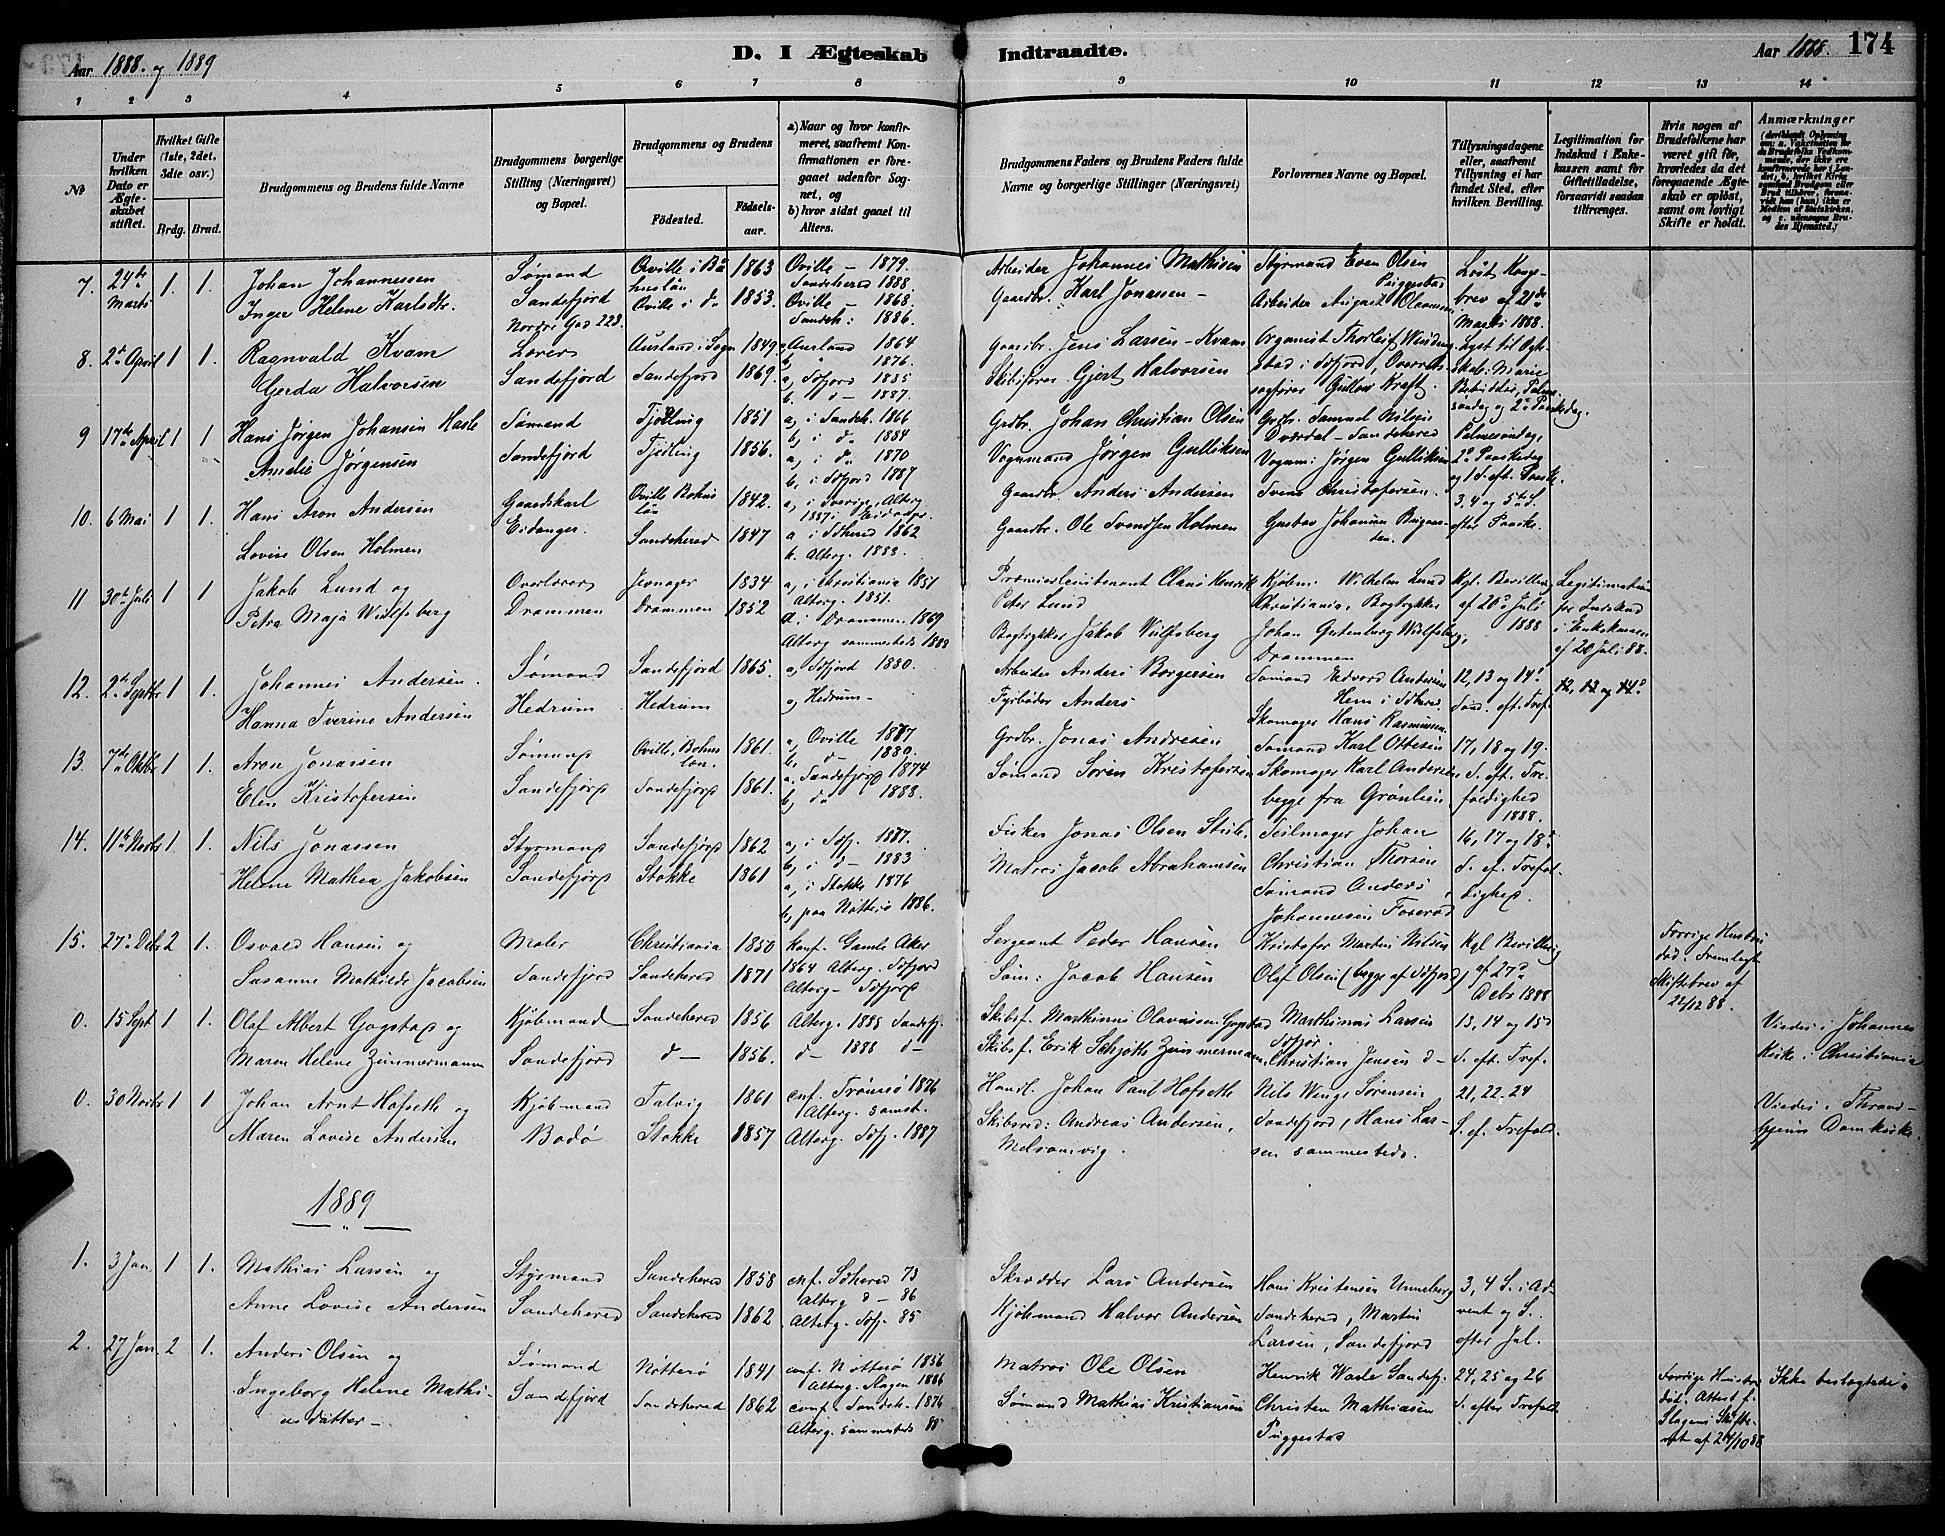 Aar 1888. og 1889
D. I Ægteskab Indtraadte.
Aar 1888.
174
1 2 3 4 5 6 7 8 9 10 11 12 13 14
No
Under hvilken Dato er Ægteskabet stiftet.
Hvilket Gifte (1ste, 2det, 3die osv.)
Brdg. Brud.
Brudgommens og Brudens fulde Navne
Brudgommens borgerlige Stilling (Næringsvei) og Bopæl.
Brudgommens og Brudens
Fødested.
Fødselsaar.
a) Naar og hvor konfirmeret, saafremt Konfirmationen er foregaaet udenfor Sognet, og
b) hvor sidst gaaet til Alters.
Brudgommens Faders og Brudens Faders fulde Navne og borgerlige Stillinger (Næringsvei)
Forlovernes Navne og Bopæl.
Tillysningsdagene eller, saafremt Tillysning ei har fundet Sted, efter hvilken Bevilling.
Legitimation for Indskud i Enkekassen samt for Giftetilladelse, forsaavidt saadan tiltrænges.
Hvis nogen af Brudefolkene har været gift før, hvorledes da det foregaaende Ægteskab er opløst, samt om lovligt Skifte er holdt.
Anmærkninger
7. 24de Marts 1. 1. Johan Johannessen Sømand Oville i Bahuslän 1863 Oville – 1879. Sandeherred 1888. Arbeider Johannes Mathisen Styrmand Even Olsen Puggestad Løst Kongebrev af 21de Marts 1888.
Inger Helene Karlsdtr. Sandefjord Nordre Gad 223. Oville i do 1853. Oville – 1868. Sandeh: 1886. Gaardbr. Karl Jonassen – Arbeider August Olaussen
8. 2d April 1 1. Ragnvald Kvam Lærer Aurland i Sogn 1849 a, Aurland 1864 b, " 1876. Gaardbr. Jens Larsen – Kvam Organist Thorleif
Gerda Halvorsen Sandefjord Sandefjord 1869. a, Sdfjord 1885 b, d – 1887. Skibsfører Gjert Halvorsen Gullow Kraft. Lyst til Ægteskab: Mariæ Bebudelse, Palmesøndag og 2den Paaskedag.
9 17de April 1 1. Hans Jørgen Johansen Hasle Sømand Tjølling 1851 a, i Sandeh. 1866 b, i do 1884 Grdbr. Johan Christian Olsen Grdbr. Samuel Nilsen – Sandeherred Palmesøndag,
Amalie Jørgensen Sandefjord Tjølling 1856. a, i do 1870 b, i Sdfjord 1887 Vognmand Jørgen Gulliksen Vognm: Jørgen Gulliksen 2den Paaskedag og 1 S. eft. Paask.
10. 6 Mai 1 1. Hans Aron Andersen Gaardskarl Oville Bohuslän 1842. a, i Sverige, Alterg. 1887 i Eidanger. Gaardbr. Anders Andersen Svend Christofersen. 3, 4 og 5te S. efter Paaske.
Lovise Olsen Holmen Eidanger. Sandeherred 1847 a i Sdherred 1862 b. Alterg. 1883. Gaardbr. Ole Svendsen Holmen Gustav Johannsen
11 30te Juli 1 1. Jakob Lund og Overlærer Jevnager 1834 a, i Christiania 1851 Alterg. 1851. Premierlieutenant Claus Henrik Peter Lund Kjøbm: Wilhelm Lund Christiania, Bogtrykker Kgl. Bevilling af 20de Juli 1888 Legitimation for Indskud i Enkekassen af 20 Juli 88.
Petra Maja Wulfsberg Drammen Drammen 1852 a, i Drammen 1869 Alterg sammesteds 1883 Bogtrykker Jakob Wulfsberg Johan Gutenberg Wulfsberg, Drammen
12. 2den Septbr 1 1. Johannes Andersen. Sømand Sandefjord 1865. a, Sdfjord 1880. Arbeider Anders Borgersen Sømand Edvard Andersen Hem i Sdherred 12, 13 og 14de Sønd. eft. Tref. 12, 13 og 14de
Hanna Iverine Andersen Hedrum Hedrum a, Hedrum – Fyrbøder Anders Skomager Hans Rasmussen
13. 7de Oktbr 1. 1. Aron Jonassen Sømand Oville, Bohuslän. 1861. a, Oville 1877 b, d – 1880. Grdbr. Jonas Andresen Sømand Karl Ottesen 17, 18 og 19. S. eft. Trefoldighed 1888.
Elen Kristofersen Sandefjord Sandefjord 1861. a. Sandefjord 1874 b, do 1888. Sømand Søren Kristofersen Skomager Karl Andersen begge fra Grønlien
14. 11te Novbr 1 1. Nils Jonassen Styrmand Sandefjord 1862 a, i Sdfj. 1877. b, i d – 1883 Fisker Jonas Olsen Stub. Seilmager Johan Christian Thorsen 16, 17 og 18de S. ef. Trefoldighed.
Helene Mathea Jakobsen Sandefjord Stokke 1861 a, i Stokke 1876 b, paa Nøtterø 1886. Matros Jacob Abrahamsen Sømand Anders Johannesen Foserød
15. 27de Debr 2 1. Osvald Hansen og Maler Christiania 1850 Konf. Gamle Aker 1864 Alterg. Sdfjord Sergeant Peder Hansen Kristofer Martin Nilsen Kgl Bevilling af 27de Debr 1888 Forrige Hustru død. Fremlagt Skiftebrev af 22/12 88.
Susanne Mathilde Jacobsen Sandefjord Sandeherred 1871 Alterg – Sdfjord Søm: Jacob Hansen Olaf Olsen (begge af Sdfjord)
0. 15 Sept 1 1. Olaf Albert Gogstad og Kjøbmand Sandeherred 1856 Alterg. 1885 Sandefj. Skibsf. Marthinus Olavussen Gogstad Marthinus Larsen Sdfjor. 13, 14 og 15de S. eft. Tref. Viedes i Johannes Kirke i Christiania
Maren Helene Zimmermann Sandefjord d – 1856. d – 1888 d – Skibsf. Erik Schjøth Zimmermann Christian Jensen d –
0. 30 Novbr 1 1 Johan Arnt Hofseth og Kjøbmand Talvig 1861 cnf. Tromsø 1876 Alterg. samst. Handl. Johan Paul Hofseth Nils Wenge Sørensen 21, 22. 24 S. ef. Trefold. Viedes i Throndhjems Domkirke.
Maren Lovise Andersen Bodø Stokke 1857 Alterg. Sdfj. 1887 Skibsred: Andreas Andersen, Melsomvig. Sandefjord, Hans Larsen sammesteds.
1889
1. 3 Jan. 1 1. Mathias Larsen og Styrmand Sandeherred 1858 cnf. Sdherred 73 Alterg d – 86 Skrædder Lars Andersen Hans Kristensen Unneberg 3, 4 S. i Advent og S. efter Jul.
Anne Lovise Andersen Sandeherred Sandeherred 1862 Alterg. Sdfj. 85 Kjøbmand Halvor Andersen Sandeherred, Martin Larsen, Sandefjord
2. 27 Jan. 2 1. Anders Olsen og Sømand Nøtterø 1841 conf. Nøtterø 1856 Alterg. Slagen 1886 Matros Ole Olsen Henrik Wasle Sandefj. 24, 25 og 26 S. efter Trefold. Forrige Hustru død. Attest f. Slagens Skifteret af 24/10 88 Ikke beslægtede.
Ingeborg Helene Mathiasdatter – Sandefjord Sandeherred 1862 conf. Sandeh. 1876 Alterg. sammesteds 88 Sømand Mathias Kristiansen Christen Mathiasen Puggestad